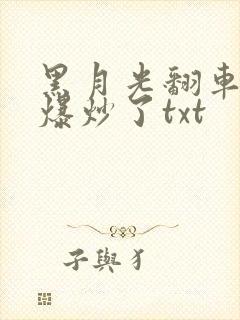 黑月光翻車
爆炒了txt
子與犭